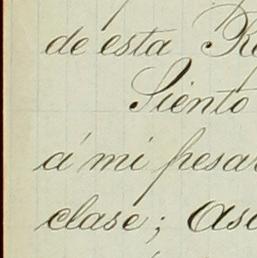 de esta
Siento
á mi pesar
clase;